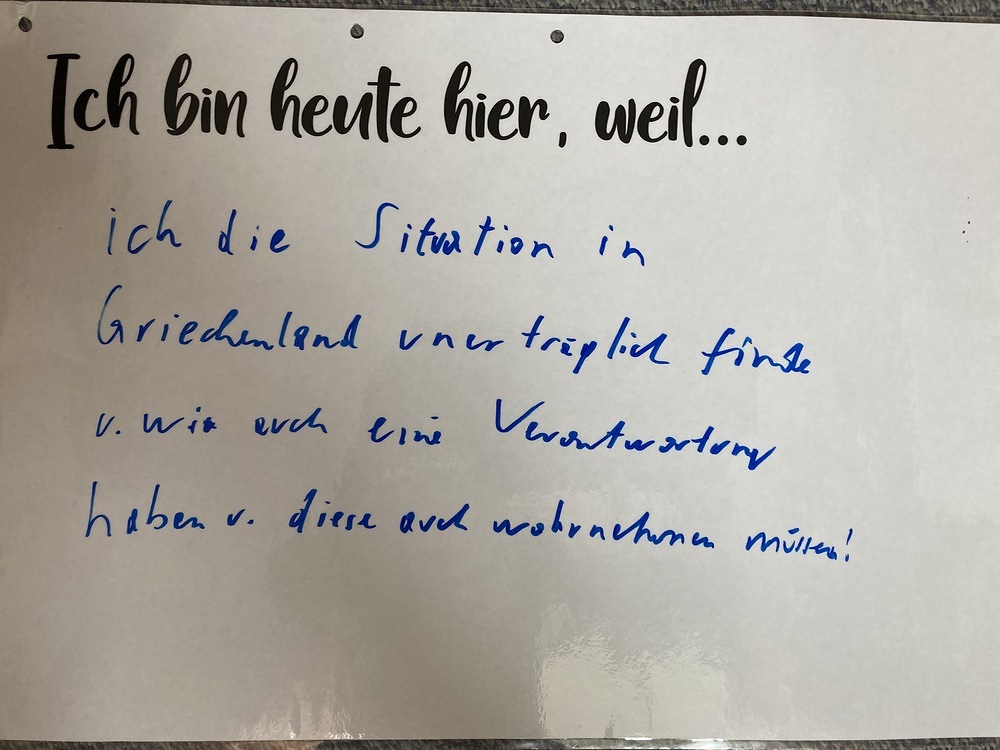 Ich bin heute hier, weil...
ich die Situation in
Griechenland unerträglich finde
u. wir auch eine Verantwortung
haben u. diese auch wahrnehmen müssen!